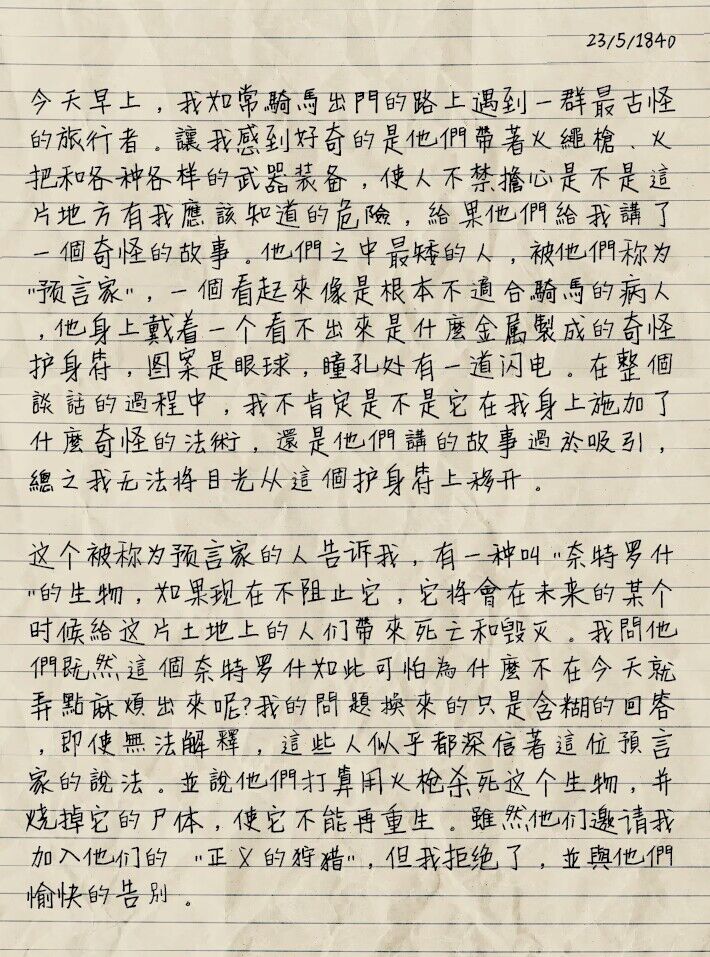 23/5/1840
今天早上，我如常騎馬出門的路上遇到一群最古怪
的旅行者。讓我感到好奇的是他們帶著火繩槍、火
把和各种各样的武器装备，使人不禁擔心是不是這
片地方有我應該知道的危險，給果他們給我講了
一個奇怪的故事。他們之中最矮的人，被他們称为
"预言家"，一個看起來像是根本不適合騎馬的病人
，他身上戴着一个看不出來是什麼金属製成的奇怪
护身符，图案是眼球，瞳孔处有一道闪电。在整個
談話的過程中，我不肯定是不是它在我身上施加了
什麼奇怪的法術，還是他們講的故事過於吸引，
總之我无法将目光从這個护身符上移开。
这个被称为预言家的人告诉我，有一种叫"奈特罗什
"的生物，如果现在不阻止它，它将會在未来的某个
时候給这片土地上的人们帶來死亡和毁灭。我問他
們既然這個奈特罗什如此可怕為什麼不在今天就
弄點麻煩出來呢?我的問題換來的只是含糊的回答
，即使無法解釋，這些人似乎都深信著這位預言
家的說法。並說他們打算用火枪杀死这个生物，并
烧掉它的尸体，使它不能再重生。雖然他们邀请我
加入他们的 "正义的狩猎"，但我拒绝了，並與他們
愉快的告別。